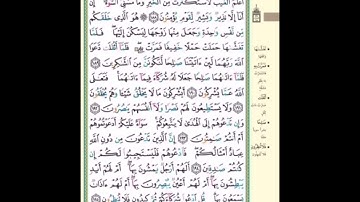 أَعْلَمُ ٱلْغَيْبَ لَٱسْتَكْثَرْتُ مِنَ ٱلْخَيْرِ وَمَا مَسَّنِيَ ٱلسُّوٓءُ
إِنْ أَنَا۠ إِلَّا نَذِيرٌ وَبَشِيرٌ لِّقَوْمٍ يُؤْمِنُونَ ١٨٨ هُوَ ٱلَّذِى خَلَقَكُم
مِّن نَّفْسٍ وَٰحِدَةٍ وَجَعَلَ مِنْهَا زَوْجَهَا لِيَسْكُنَ إِلَيْهَا ۖ فَلَمَّا
تَغَشَّىٰهَا حَمَلَتْ حَمْلًا خَفِيفًا فَمَرَّتْ بِهِۦ ۖ فَلَمَّآ أَثْقَلَت دَّعَوَا
ٱللَّهَ رَبَّهُمَا لَئِنْ ءَاتَيْتَنَا صَٰلِحًا لَّنَكُونَنَّ مِنَ ٱلشَّٰكِرِينَ ١٨٩
فَلَمَّآ ءَاتَىٰهُمَا صَٰلِحًا جَعَلَا لَهُۥ شُرَكَآءَ فِيمَآ ءَاتَىٰهُمَا ۚ فَتَعَٰلَى
ٱللَّهُ عَمَّا يُشْرِكُونَ ١٩٠ أَيُشْرِكُونَ مَا لَا يَخْلُقُ شَيْـًٔا وَهُمْ يُخْلَقُونَ ١٩١
وَلَا يَسْتَطِيعُونَ لَهُمْ نَصْرًا وَلَآ أَنفُسَهُمْ يَنصُرُونَ ١٩٢
وَإِن تَدْعُوهُمْ إِلَى ٱلْهُدَىٰ لَا يَتَّبِعُوكُمْ ۚ سَوَآءٌ عَلَيْكُمْ أَدَعَوْتُمُوهُمْ
أَمْ أَنتُمْ صَٰمِتُونَ ١٩٣ إِنَّ ٱلَّذِينَ تَدْعُونَ مِن دُونِ ٱللَّهِ
عِبَادٌ أَمْثَالُكُمْ ۖ فَٱدْعُوهُمْ فَلْيَسْتَجِيبُوا۟ لَكُمْ إِن
كُنتُمْ صَٰدِقِينَ ١٩٤ أَلَهُمْ أَرْجُلٌ يَمْشُونَ بِهَآ ۖ أَمْ لَهُمْ أَيْدٍ
يَبْطِشُونَ بِهَآ ۖ أَمْ لَهُمْ أَعْيُنٌ يُبْصِرُونَ بِهَآ ۖ أَمْ لَهُمْ ءَاذَانٌ
يَسْمَعُونَ بِهَا ۗ قُلِ ٱدْعُوا۟ شُرَكَآءَكُمْ ثُمَّ كِيدُونِ فَلَا تُنظِرُونِ ١٩٥